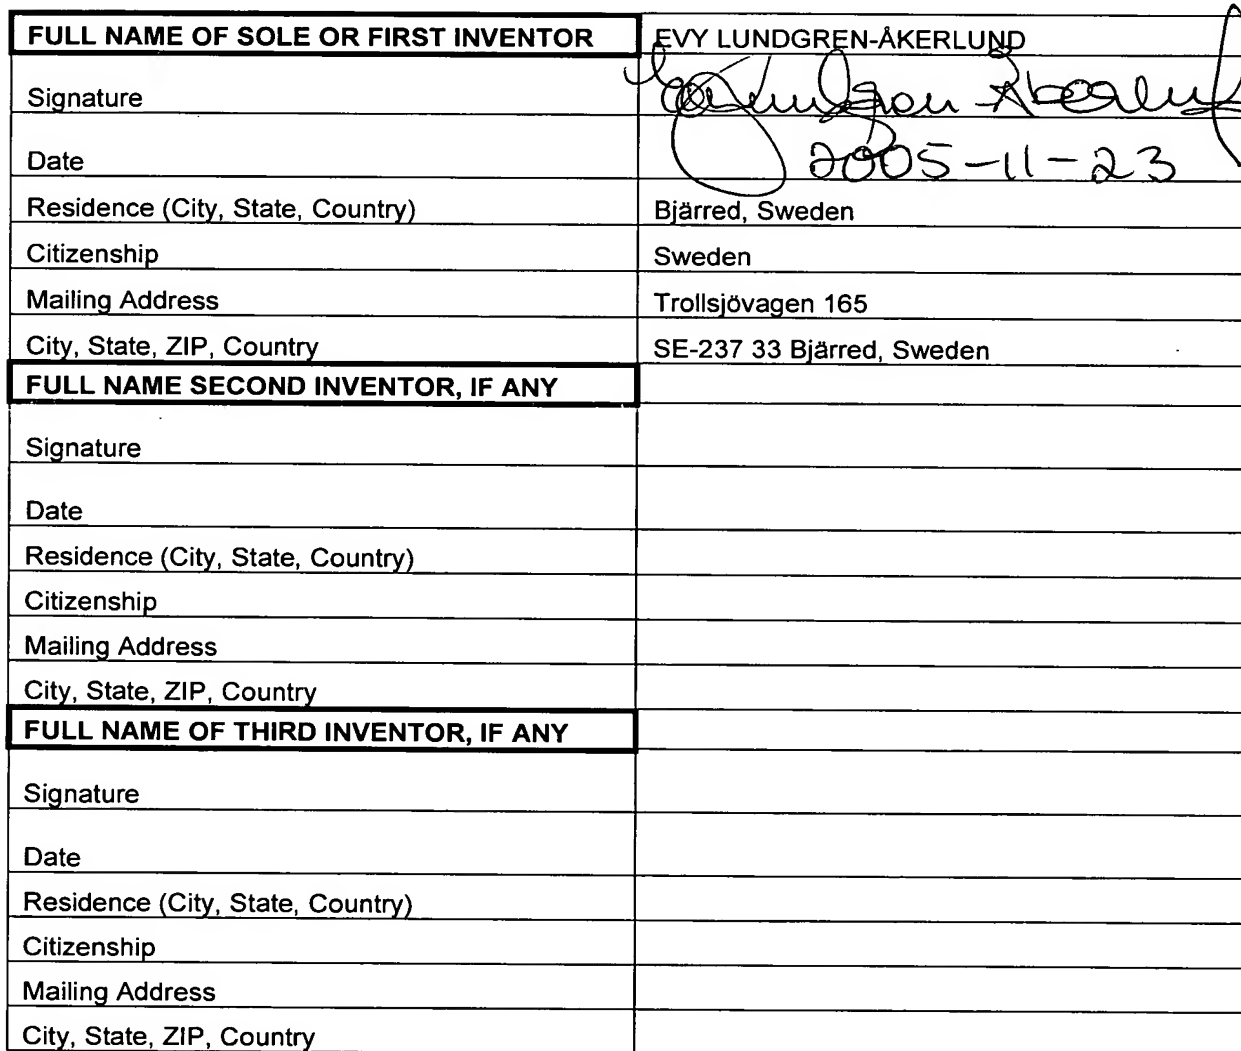 FULL NAME OF SOLE OR FIRST INVENTOR EVY LUNDGREN-ÅKERLUND
Signature Evy Lundgren-Åkerlund
Date 2005-11-23
Residence (City, State, Country) Bjärred, Sweden
Citizenship Sweden
Mailing Address Trollsjövagen 165
City, State, ZIP, Country SE-237 33 Bjärred, Sweden
FULL NAME SECOND INVENTOR, IF ANY
Signature
Date
Residence (City, State, Country)
Citizenship
Mailing Address
City, State, ZIP, Country
FULL NAME OF THIRD INVENTOR, IF ANY
Signature
Date
Residence (City, State, Country)
Citizenship
Mailing Address
City, State, ZIP, Country